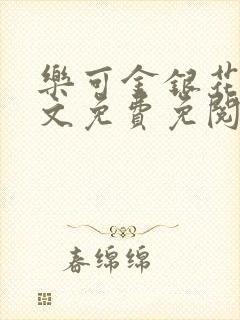 樂可金銀花
文免費免閱
春绵绵